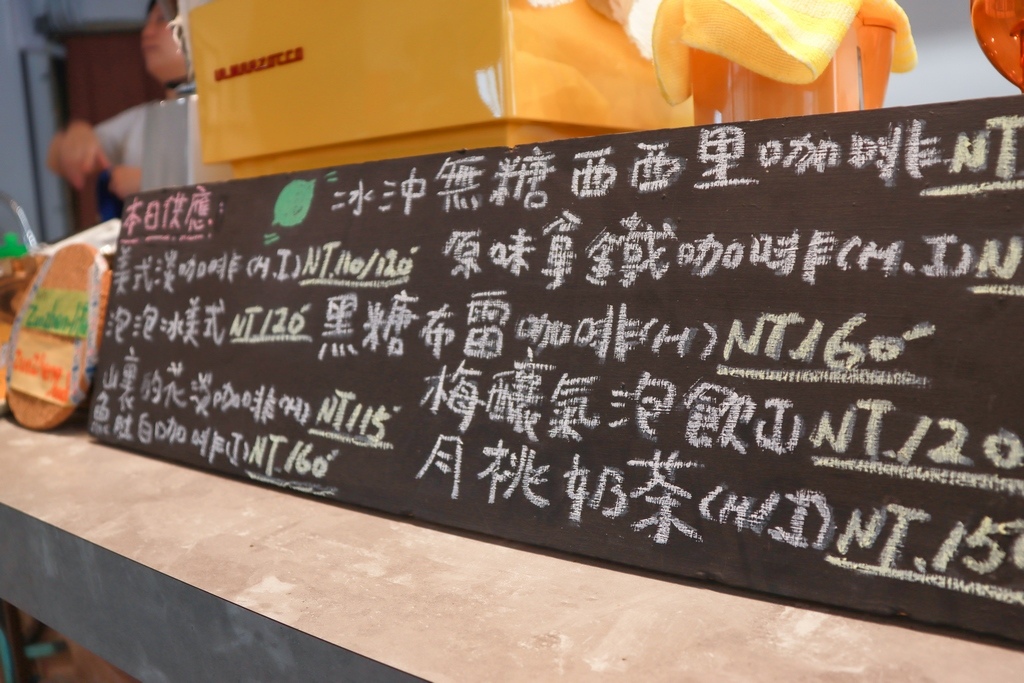 LA MARZOCCO
本日供應:
美式淡咖啡(H.I)NT.110/120
泡泡冰美式 NT120
山裏的花淡咖啡(H) NT.115
魚肚白咖啡(I) NT.160
冰沖無糖西西里咖啡 NT
原味拿鐵咖啡(H.I) N
黑糖布雷咖啡(H) NT.160
梅釀氣泡飲(I) NT.120
月桃奶茶(H/I) NT.150